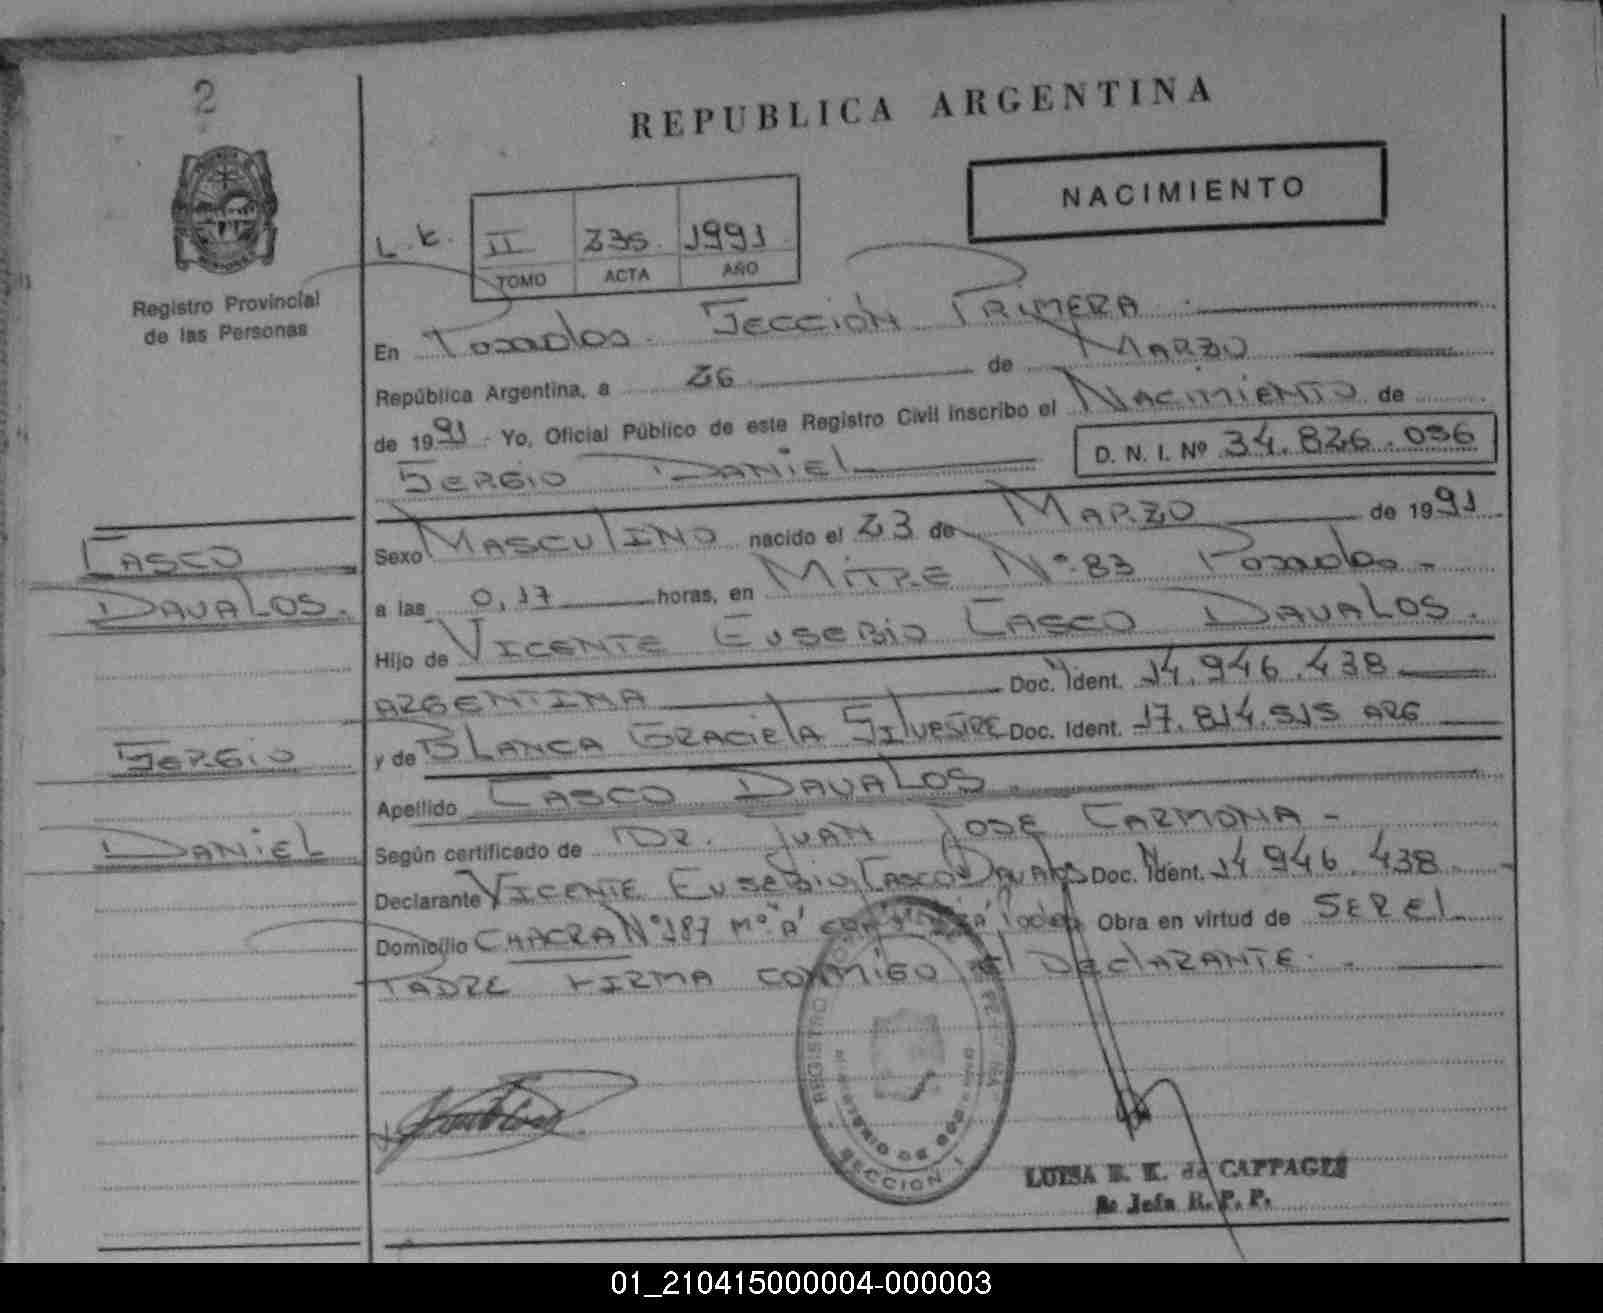 2
REPUBLICA ARGENTINA
NACIMIENTO
Registro Provincial
de las Personas
L. K.
II 236. 1991
TOMO ACTA AÑO
En Posadas. Sección Primera
República Argentina, a 26 de Marzo
de 1991. Yo, Oficial Público de este Registro Civil inscribo el Nacimiento de
Sergio Daniel D. N. I. Nº 34.826.036
Casco
Davalos.
Sexo Masculino nacido el 23 de Marzo de 1991
a las 0,17 horas, en Mitre Nº 83 Posadas.
Hijo de Vicente Eusebio Casco Davalos.
Argentina Doc. Ident. 14.946.438
y de Blanca Graciela Silvestre Doc. Ident. 17.814.515 ARG
Sergio
Apellido Casco Davalos.
Daniel
Según certificado de DR. Juan Jose Carmona -
Declarante Vicente Eusebio Casco Davalos Doc. Ident. 14 946.438
Domicilio Chacra Nº 187 Mº "A" Obra en virtud de ser el
Padre firma conmigo el Declarante.
REGISTRO
MINISTERIO DE GOB
SECCION 1
LUISA E. K. de CAPPAGES
R. P. P.
01_210415000004-000003